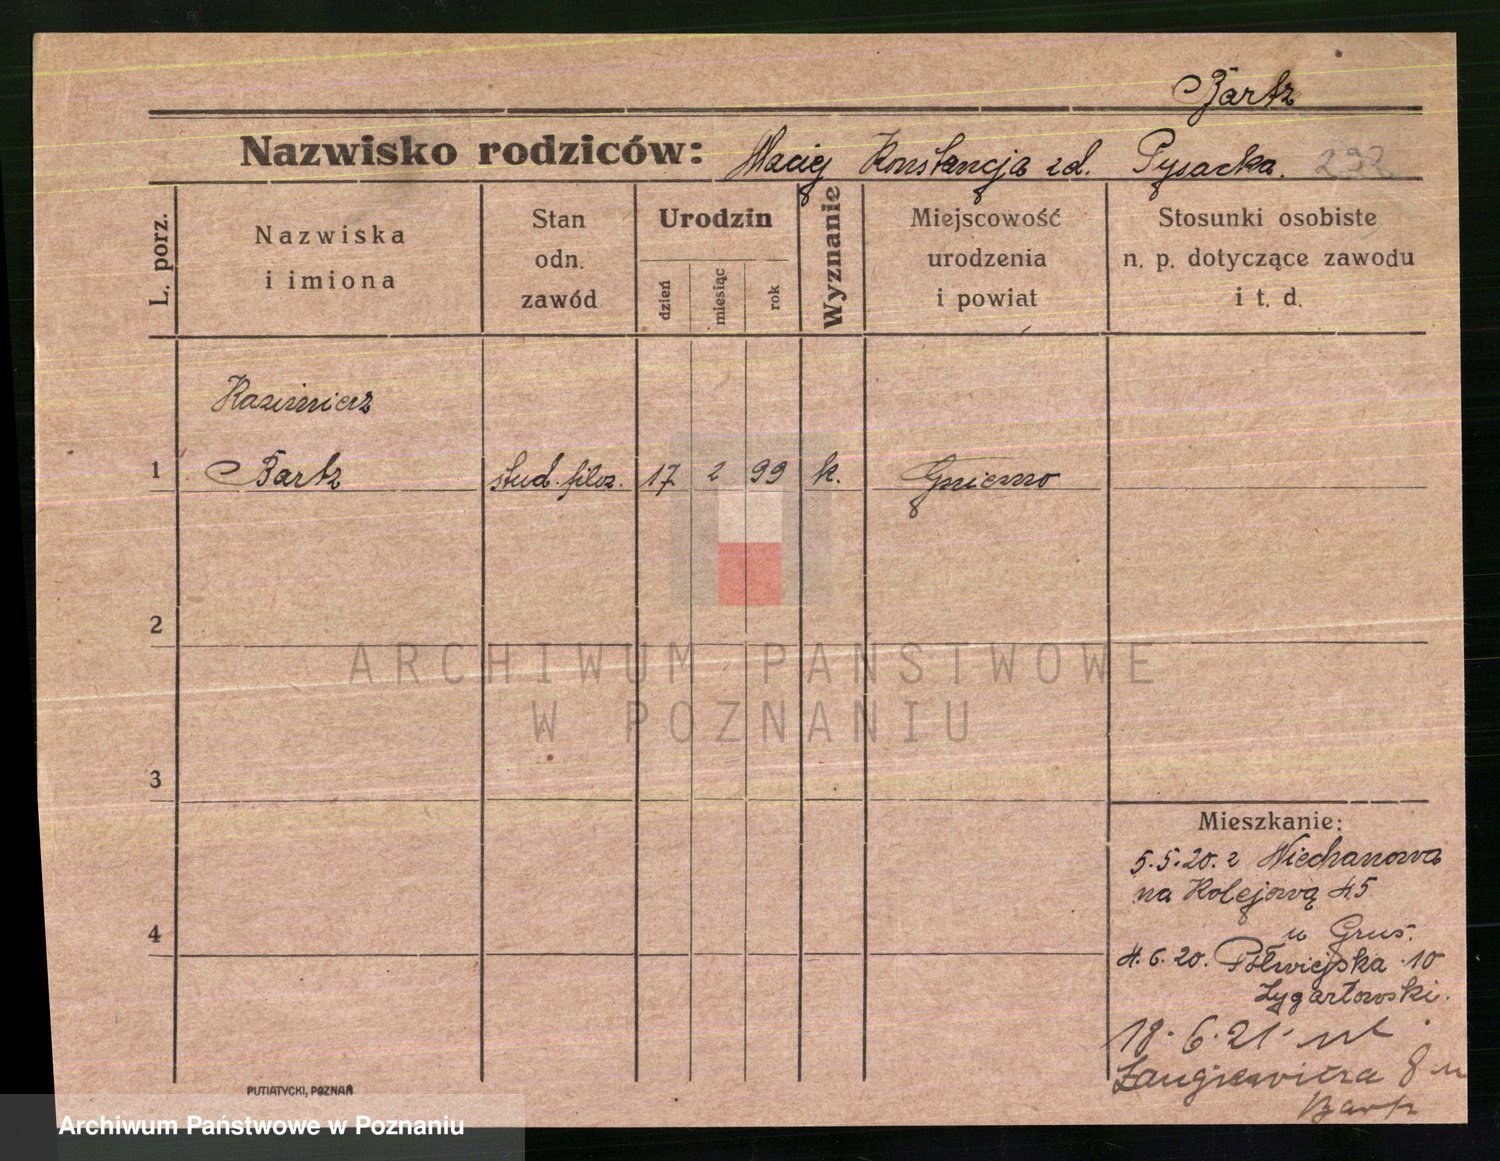 Bartz
Nazwisko rodziców: Maciej Konstancja zd. Pysacka. 232
L. porz.
Nazwiska
i imiona
Stan
odn.
zawód
Urodzin
dzień
miesiąc
rok
Wyznanie
Miejscowość
urodzenia
i powiat
Stosunki osobiste
n. p. dotyczące zawodu
i t. d.
Kazimierz
1 Bartz stud. filoz. 17 2 99 k. Gniezno
2
ARCHIWUM PAŃSTWOWE
W POZNANIU
3
Mieszkanie:
5.5.20. z Niechanowa
na Kolejową 45
4
u Grus.
4.6.20. Półwiejska 10
Zygartowski.
18.6.21.
8
Bartz
PUTIATYCKI, POZNAŃ
Archiwum Państwowe w Poznaniu